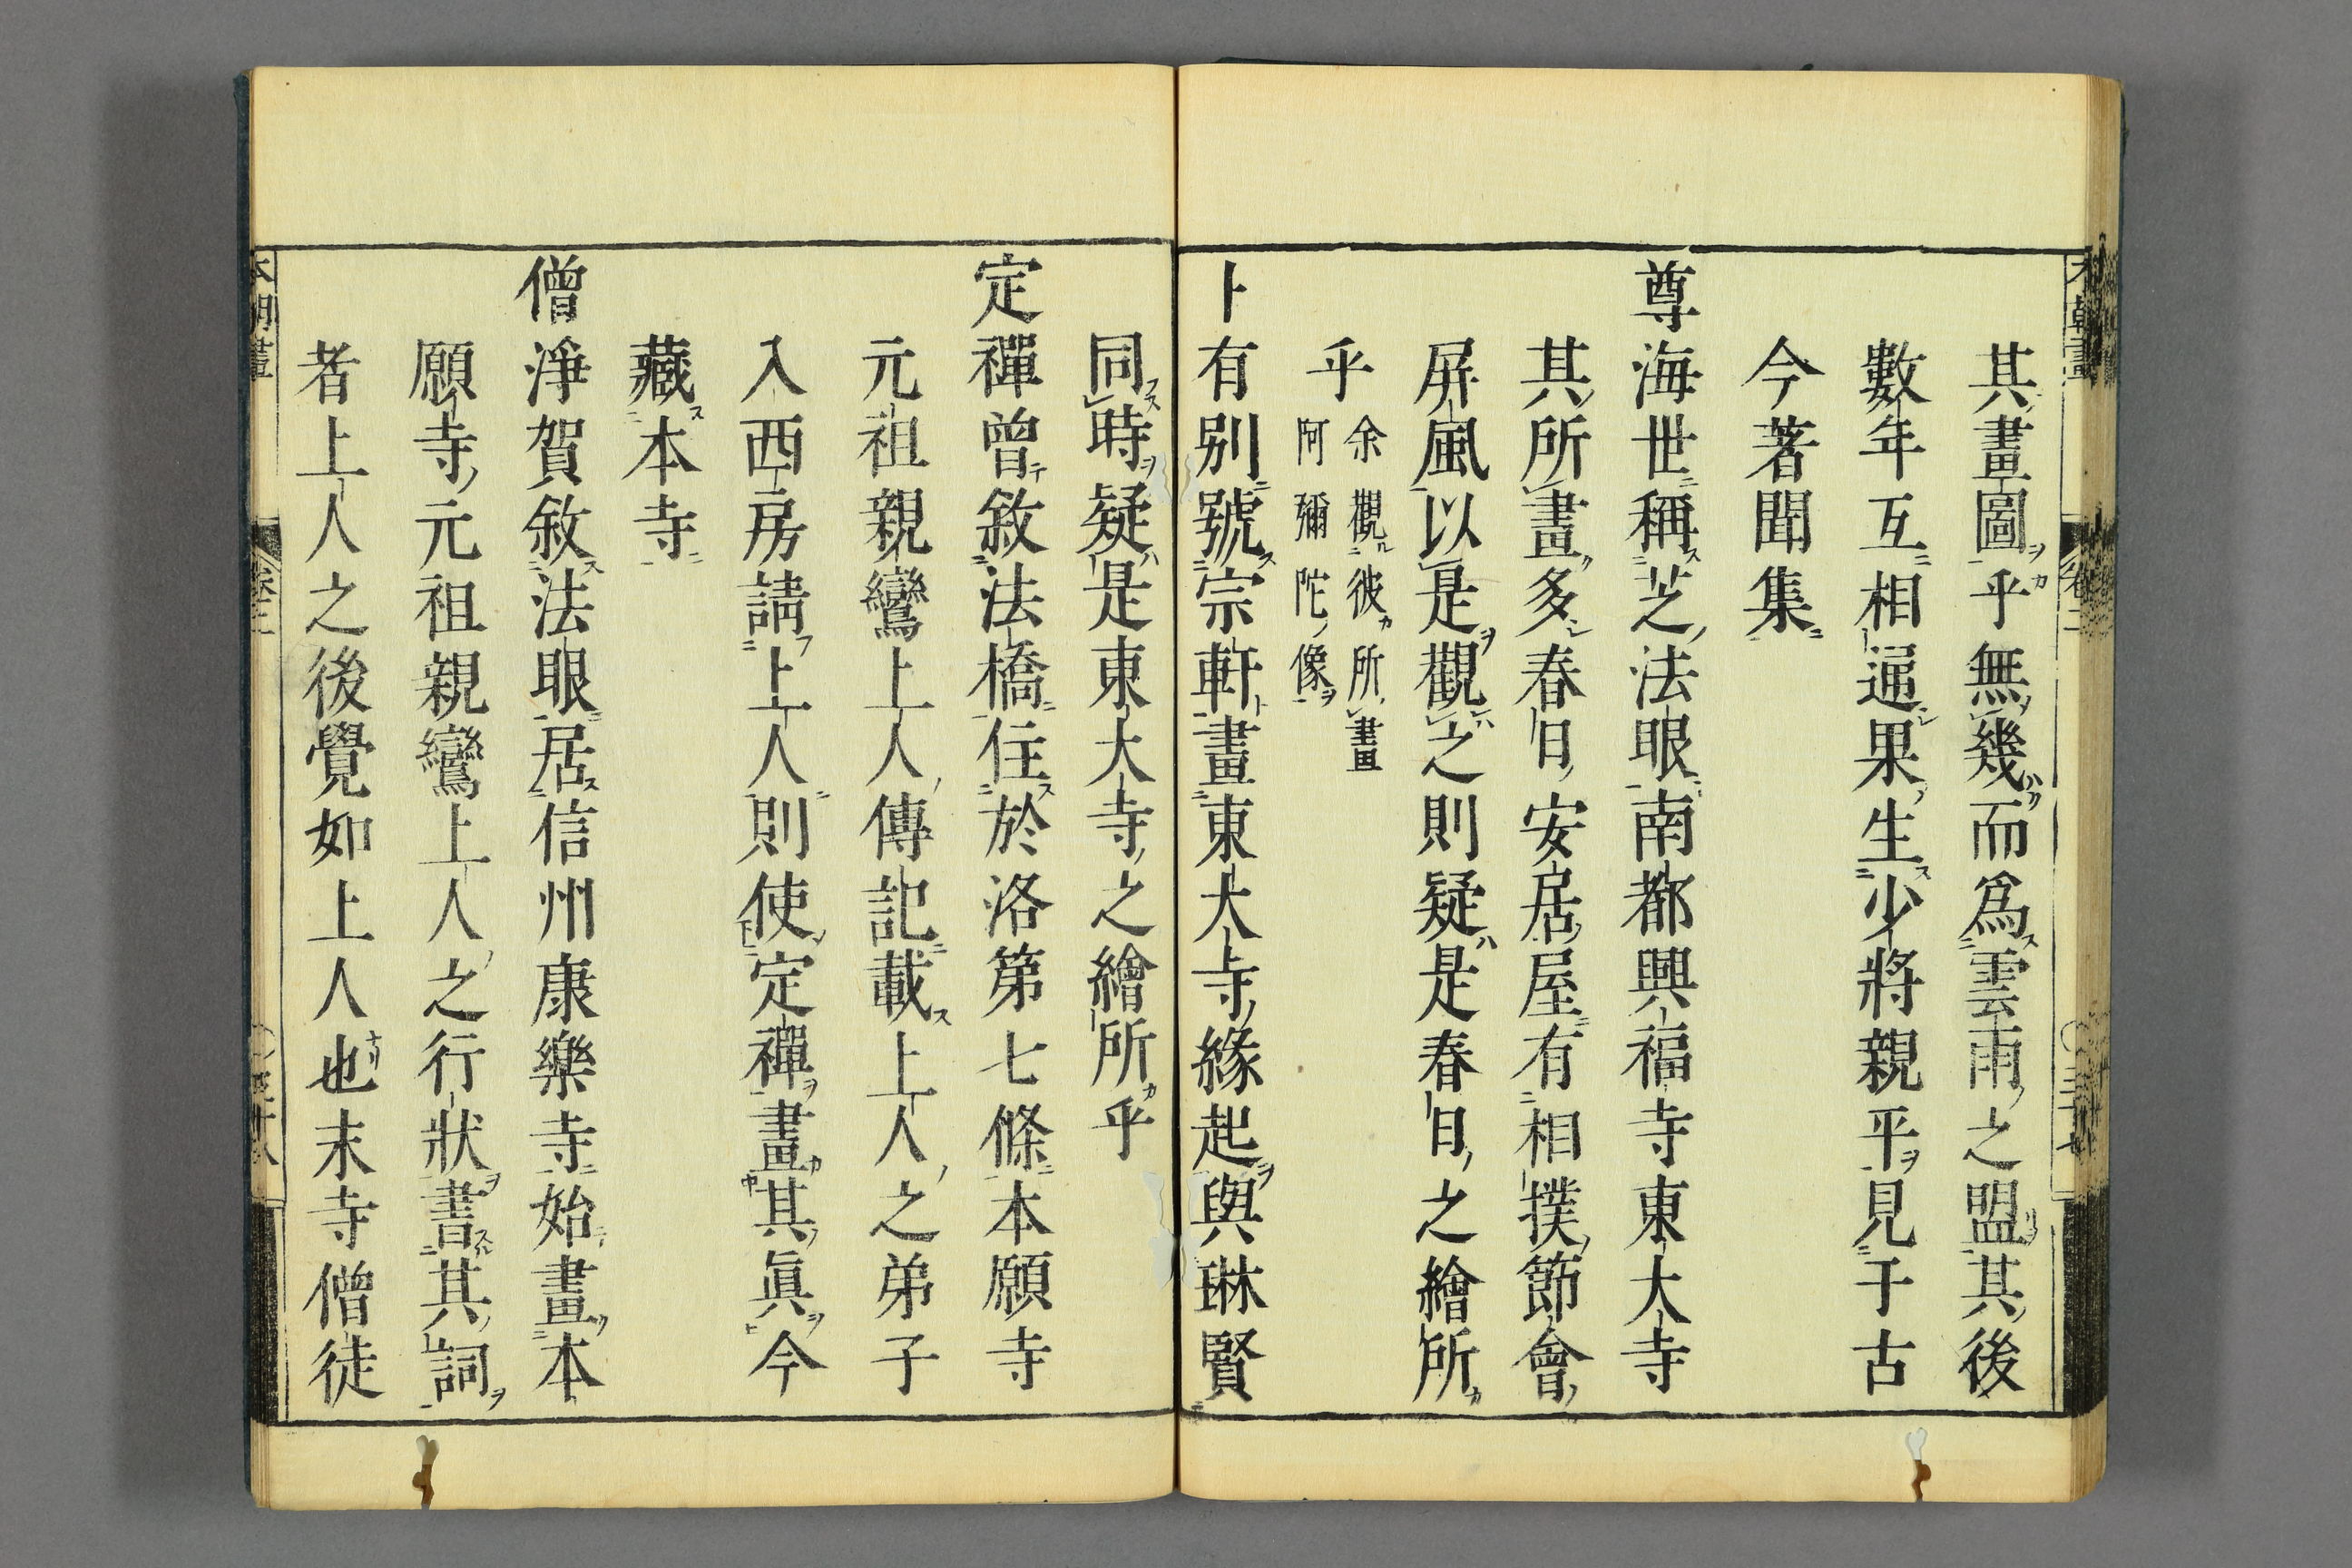 其畫圖乎無幾而爲雲雨之盟其後
數年互相逼果生少將親平見于古
今著聞集
尊海世稱芝法眼南都興福寺東大寺
其所畫多春日安居屋有相撲節會
屏風以是觀之則疑是春日之繪所
乎
余觀彼所畫
阿彌陀像
卜有別號宗軒畫東大寺緣起與琳賢
同時疑是東大寺之繪所乎
定禪曾敘法橋住於洛第七條本願寺
元祖親鸞上人傳記載上人之弟子
入西房請上人則使定禪畫其眞今
藏本寺
僧淨賀敘法眼居信州康樂寺始畫本
願寺元祖親鸞上人之行狀書其詞
者上人之後覺如上人也末寺僧徒